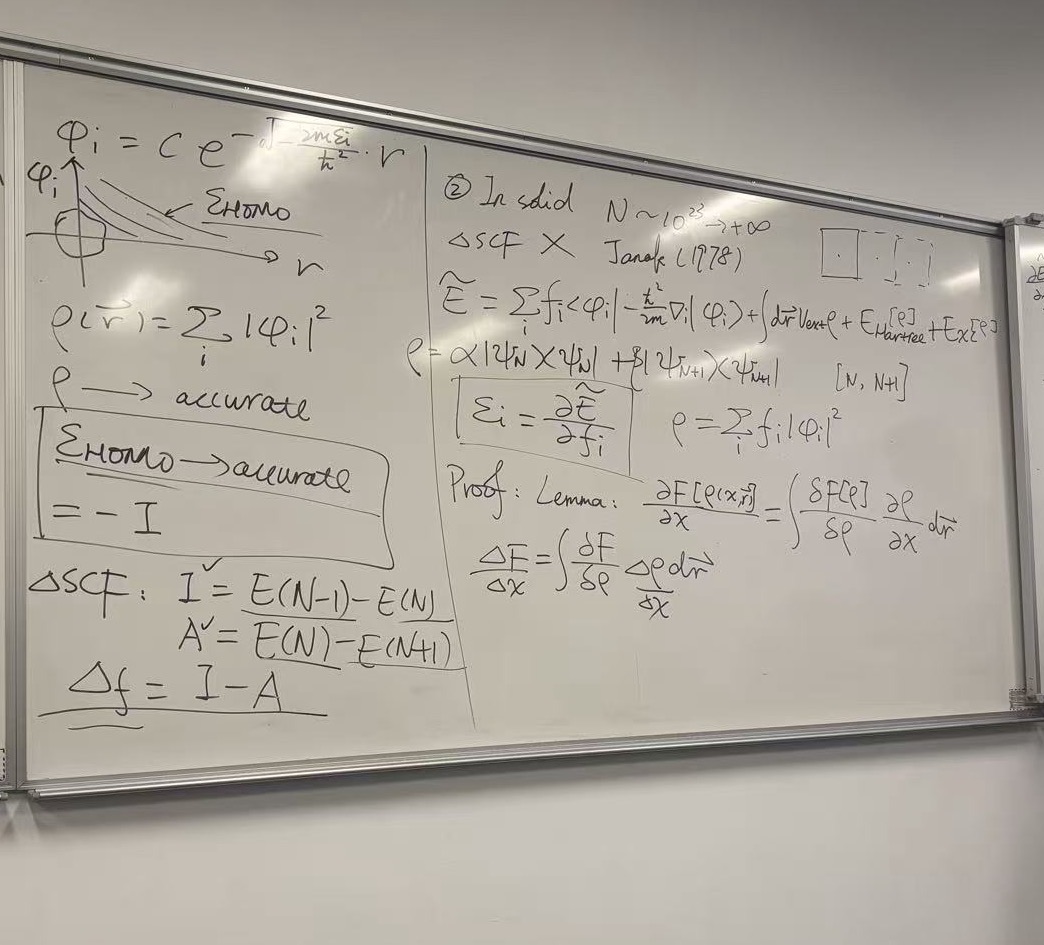 φᵢ = c e^{-√(-2mεᵢ/ħ²) · r}
φᵢ
ε_HOMO
r
ρ(r⃗) = Σᵢ |φᵢ|²
ρ → accurate
ε_HOMO → accurate
= - I
ΔSCF: I✓ = E(N-1) - E(N)
A✓ = E(N) - E(N+1)
Δf = I - A
② In solid N ~ 10²³ → +∞
ΔSCF × Janak (1978)
Ẽ = Σᵢ fᵢ <φᵢ| -ħ²/2m ∇ᵢ |φᵢ> + ∫dr⃗ V_ext ρ + E_Hartree[ρ] + E_X[ρ]
ρ = α|ψ_N><ψ_N| + β|ψ_{N+1}><ψ_{N+1}| [N, N+1]
εᵢ = ∂Ẽ/∂fᵢ ρ = Σᵢ fᵢ|φᵢ|²
Proof: Lemma: ∂F[ρ(x,r⃗)]/∂x = ∫ δF[ρ]/δρ ∂ρ/∂x dr⃗
ΔF/Δx = ∫ δF/δρ Δρ/Δx dr⃗